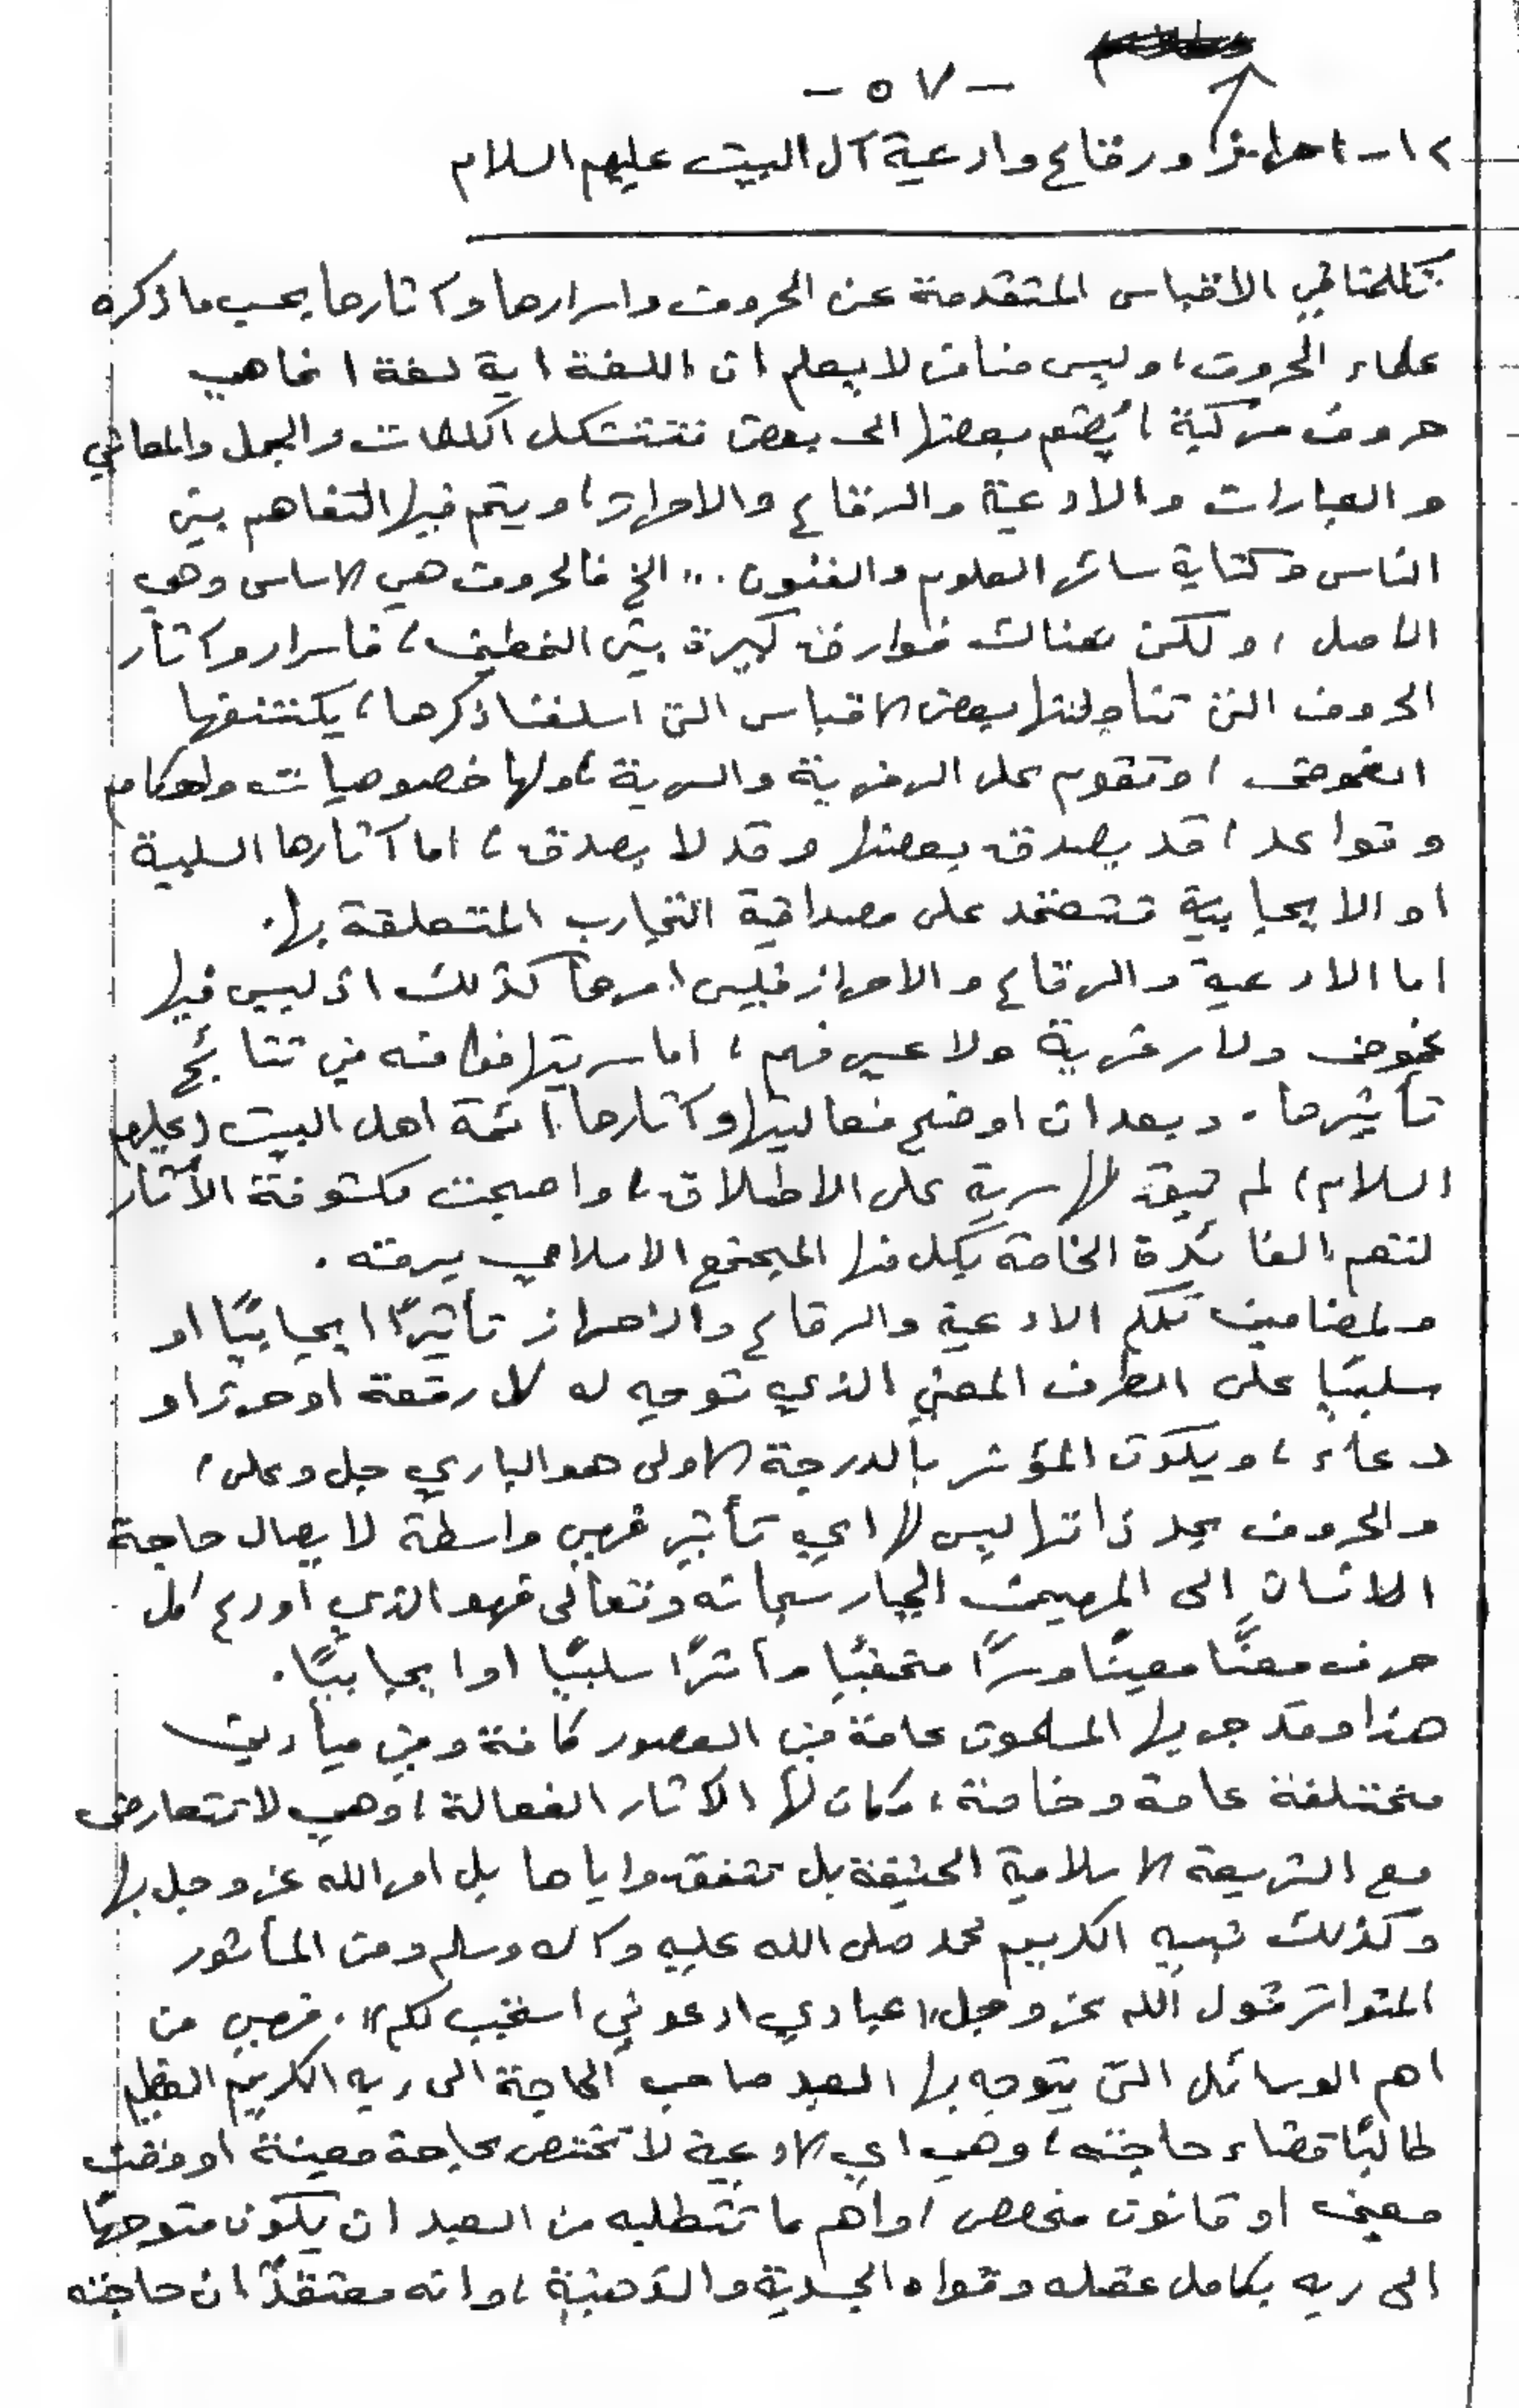 - ٥٧ -
١٢- احراز ورقاع وادعية آل البيت عليهم السلام
تكلمنا في الاقباس المتقدمة عن الحروف واسرارها وآثارها بحسب ما ذكره
علماء الحروف، وليس منا من لا يعلم ان اللغة اية لغة انما هي
حروف مركبة، يُضم بعضها الى بعض فتتشكل الكلمات والجمل والمعاني
والعبارات والادعية والرقاع والاحراز، ويتم فيها التفاهم بين
الناس وكتابة سائر العلوم والفنون... الخ فالحروف هي الاساس وهي
الاصل، ولكن هناك فوارق كبيرة بين النمطين، فأسرار وآثار
الحروف التي تناولتها بعض الاقباس التي اسلفنا ذكرها، يكتنفها
الغموض، وتقوم على الرمزية والسرية، ولها خصوصيات واحكام
وقواعد، قد يصدق بعضها وقد لا يصدق، اما آثارها السلبية
او الايجابية فتعتمد على مصداقية التجارب المتعلقة بها.
اما الادعية والرقاع والاحراز فليس امرها كذلك اذ ليس فيها
غموض ولا رمزية ولا عسر فهم، اما سريتها فكامنه في نتائج
تأثيرها. وبعد ان اوضح فعاليتها وآثارها أئمة اهل البيت (عليهم
السلام) لم تبق لها سرية على الاطلاق، واصبحت مكشوفة الآثار
لتعم الفائدة الخاصة بكل منها المجتمع الاسلامي برمته.
ولمضامين تلكم الادعية والرقاع والاحراز تأثيرًا ايجابيًا او
سلبيًا على الطرف المعني الذي توجه له كل رقعة او حرز او
دعاء، ويكون المؤثر بالدرجة الاولى هو الباري جل وعلى،
والحروف بحد ذاتها ليس لها اي تأثير فهي واسطة لايصال حاجة
الانسان إلى المهيمن الجبار سبحانه وتعالى فهو الذي أودع كل
حرف معنًا معينًا وسرًا متخفيًا وأثرًا سلبيًا او ايجابيًا.
هذا وقد جربها المسلمون عامة في العصور كافة وفي ميادين
مختلفة عامة وخاصة، وكان لها الآثار الفعالة، وهي لا تتعارض
مع الشريعة الاسلامية الحنيفة بل تتفق واياها بل امر الله عز وجل بها
وكذلك نبيه الكريم محمد صلى الله عليه وآله وسلم ومن المأثور
المتواتر قول الله عز وجل "عبادي ادعوني استجب لكم". فهي من
اهم الوسائل التي يتوجه بها العبد صاحب الحاجة الى ربه الكريم العظيم
طالبًا قضاء حاجته، وهي اي الادعية لا تختص بحاجة معينة او وقت
معين او قانون مخصص، واهم ما تتطلبه من العبد ان يكون متوجهًا
الى ربه بكامل عقله وقواه الجسدية والذهنية، وانه معتقدٌ ان حاجته